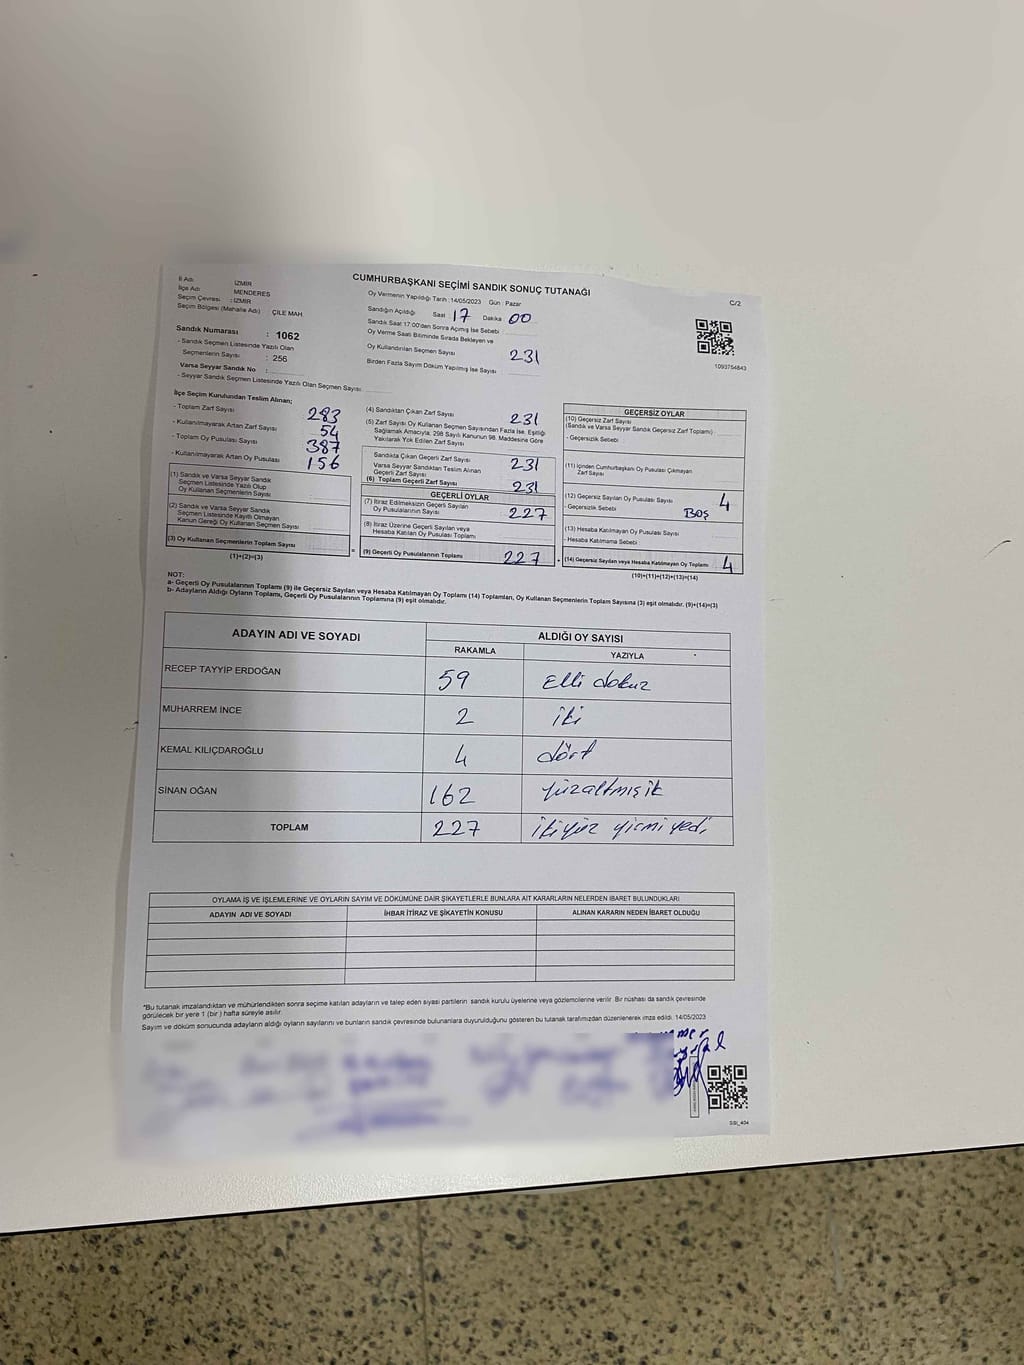 CUMHURBAŞKANI SEÇİMİ SANDIK SONUÇ TUTANAĞI
C/2
İl Adı : İZMİR
İlçe Adı : MENDERES
Seçim Çevresi : İZMİR
Seçim Bölgesi (Mahalle Adı) : ÇİLE MAH.
Sandık Numarası : 1062
- Sandık Seçmen Listesinde Yazılı Olan
Seçmenlerin Sayısı : 256
Varsa Seyyar Sandık No :
- Seyyar Sandık Seçmen Listesinde Yazılı Olan Seçmen Sayısı:
Oy Vermenin Yapıldığı Tarih :14/05/2023 Gün : Pazar
Sandığın Açıldığı Saat 17 Dakika 00
Sandık Saat 17:00'den Sonra Açılmış İse Sebebi
Oy Verme Saati Bitiminde Sırada Bekleyen ve
Oy Kullandırılan Seçmen Sayısı 231
Birden Fazla Sayım Döküm Yapılmış İse Sayısı
1093754843
İlçe Seçim Kurulundan Teslim Alınan;
- Toplam Zarf Sayısı 283
- Kullanılmayarak Artan Zarf Sayısı 54
- Toplam Oy Pusulası Sayısı 387
- Kullanılmayarak Artan Oy Pusulası 156
(1) Sandık ve Varsa Seyyar Sandık
Seçmen Listesinde Yazılı Olup
Oy Kullanan Seçmenlerin Sayısı
(2) Sandık ve Varsa Seyyar Sandık
Seçmen Listesinde Kayıtlı Olmayan
Kanun Gereği Oy Kullanan Seçmen Sayısı
(3) Oy Kullanan Seçmenlerin Toplam Sayısı
(1)+(2)=(3)
(4) Sandıktan Çıkan Zarf Sayısı 231
(5) Zarf Sayısı Oy Kullanan Seçmen Sayısından Fazla İse, Eşitliği
Sağlamak Amacıyla; 298 Sayılı Kanunun 98. Maddesine Göre
Yakılarak Yok Edilen Zarf Sayısı
Sandıkta Çıkan Geçerli Zarf Sayısı 231
Varsa Seyyar Sandıktan Teslim Alınan
Geçerli Zarf Sayısı
(6) Toplam Geçerli Zarf Sayısı 231
GEÇERLİ OYLAR
(7) İtiraz Edilmeksizin Geçerli Sayılan
Oy Pusulalarının Sayısı 227
(8) İtiraz Üzerine Geçerli Sayılan veya
Hesaba Katılan Oy Pusulası Toplamı
= (9) Geçerli Oy Pusulalarının Toplamı 227 +
GEÇERSİZ OYLAR
(10) Geçersiz Zarf Sayısı
(Sandık ve Varsa Seyyar Sandık Geçersiz Zarf Toplamı)
- Geçersizlik Sebebi
(11) İçinden Cumhurbaşkanı Oy Pusulası Çıkmayan
Zarf Sayısı
(12) Geçersiz Sayılan Oy Pusulası Sayısı 4
- Geçersizlik Sebebi BOŞ
(13) Hesaba Katılmayan Oy Pusulası Sayısı
- Hesaba Katılmama Sebebi
(14) Geçersiz Sayılan veya Hesaba Katılmayan Oy Toplamı 4
(10)+(11)+(12)+(13)=(14)
NOT:
a- Geçerli Oy Pusulalarının Toplamı (9) ile Geçersiz Sayılan veya Hesaba Katılmayan Oy Toplamı (14) Toplamları, Oy Kullanan Seçmenlerin Toplam Sayısına (3) eşit olmalıdır. (9)+(14)=(3)
b- Adayların Aldığı Oyların Toplamı, Geçerli Oy Pusulalarının Toplamına (9) eşit olmalıdır.
ADAYIN ADI VE SOYADI
ALDIĞI OY SAYISI
RAKAMLA YAZIYLA
RECEP TAYYİP ERDOĞAN 59 Elli dokuz
MUHARREM İNCE 2 iki
KEMAL KILIÇDAROĞLU 4 dört
SİNAN OĞAN 162 yüzaltmışik
TOPLAM 227 ikiyüz yirmi yedi
OYLAMA İŞ VE İŞLEMLERİNE VE OYLARIN SAYIM VE DÖKÜMÜNE DAİR ŞİKAYETLERLE BUNLARA AİT KARARLARIN NELERDEN İBARET BULUNDUKLARI
ADAYIN ADI VE SOYADI İHBAR İTİRAZ VE ŞİKAYETİN KONUSU ALINAN KARARIN NEDEN İBARET OLDUĞU
"Bu tutanak imzalandıktan ve mühürlendikten sonra seçime katılan adayların ve talep eden siyasi partilerin sandık kurulu üyelerine veya gözlemcilerine verilir. Bir nüshası da sandık çevresinde
görülecek bir yere 1 (bir ) hafta süreyle asılır.
Sayım ve döküm sonucunda adayların aldığı oyların sayılarını ve bunların sandık çevresinde bulunanlara duyurulduğunu gösteren bu tutanak tarafımızdan düzenlenerek imza edildi. 14/05/2023
SSI_404